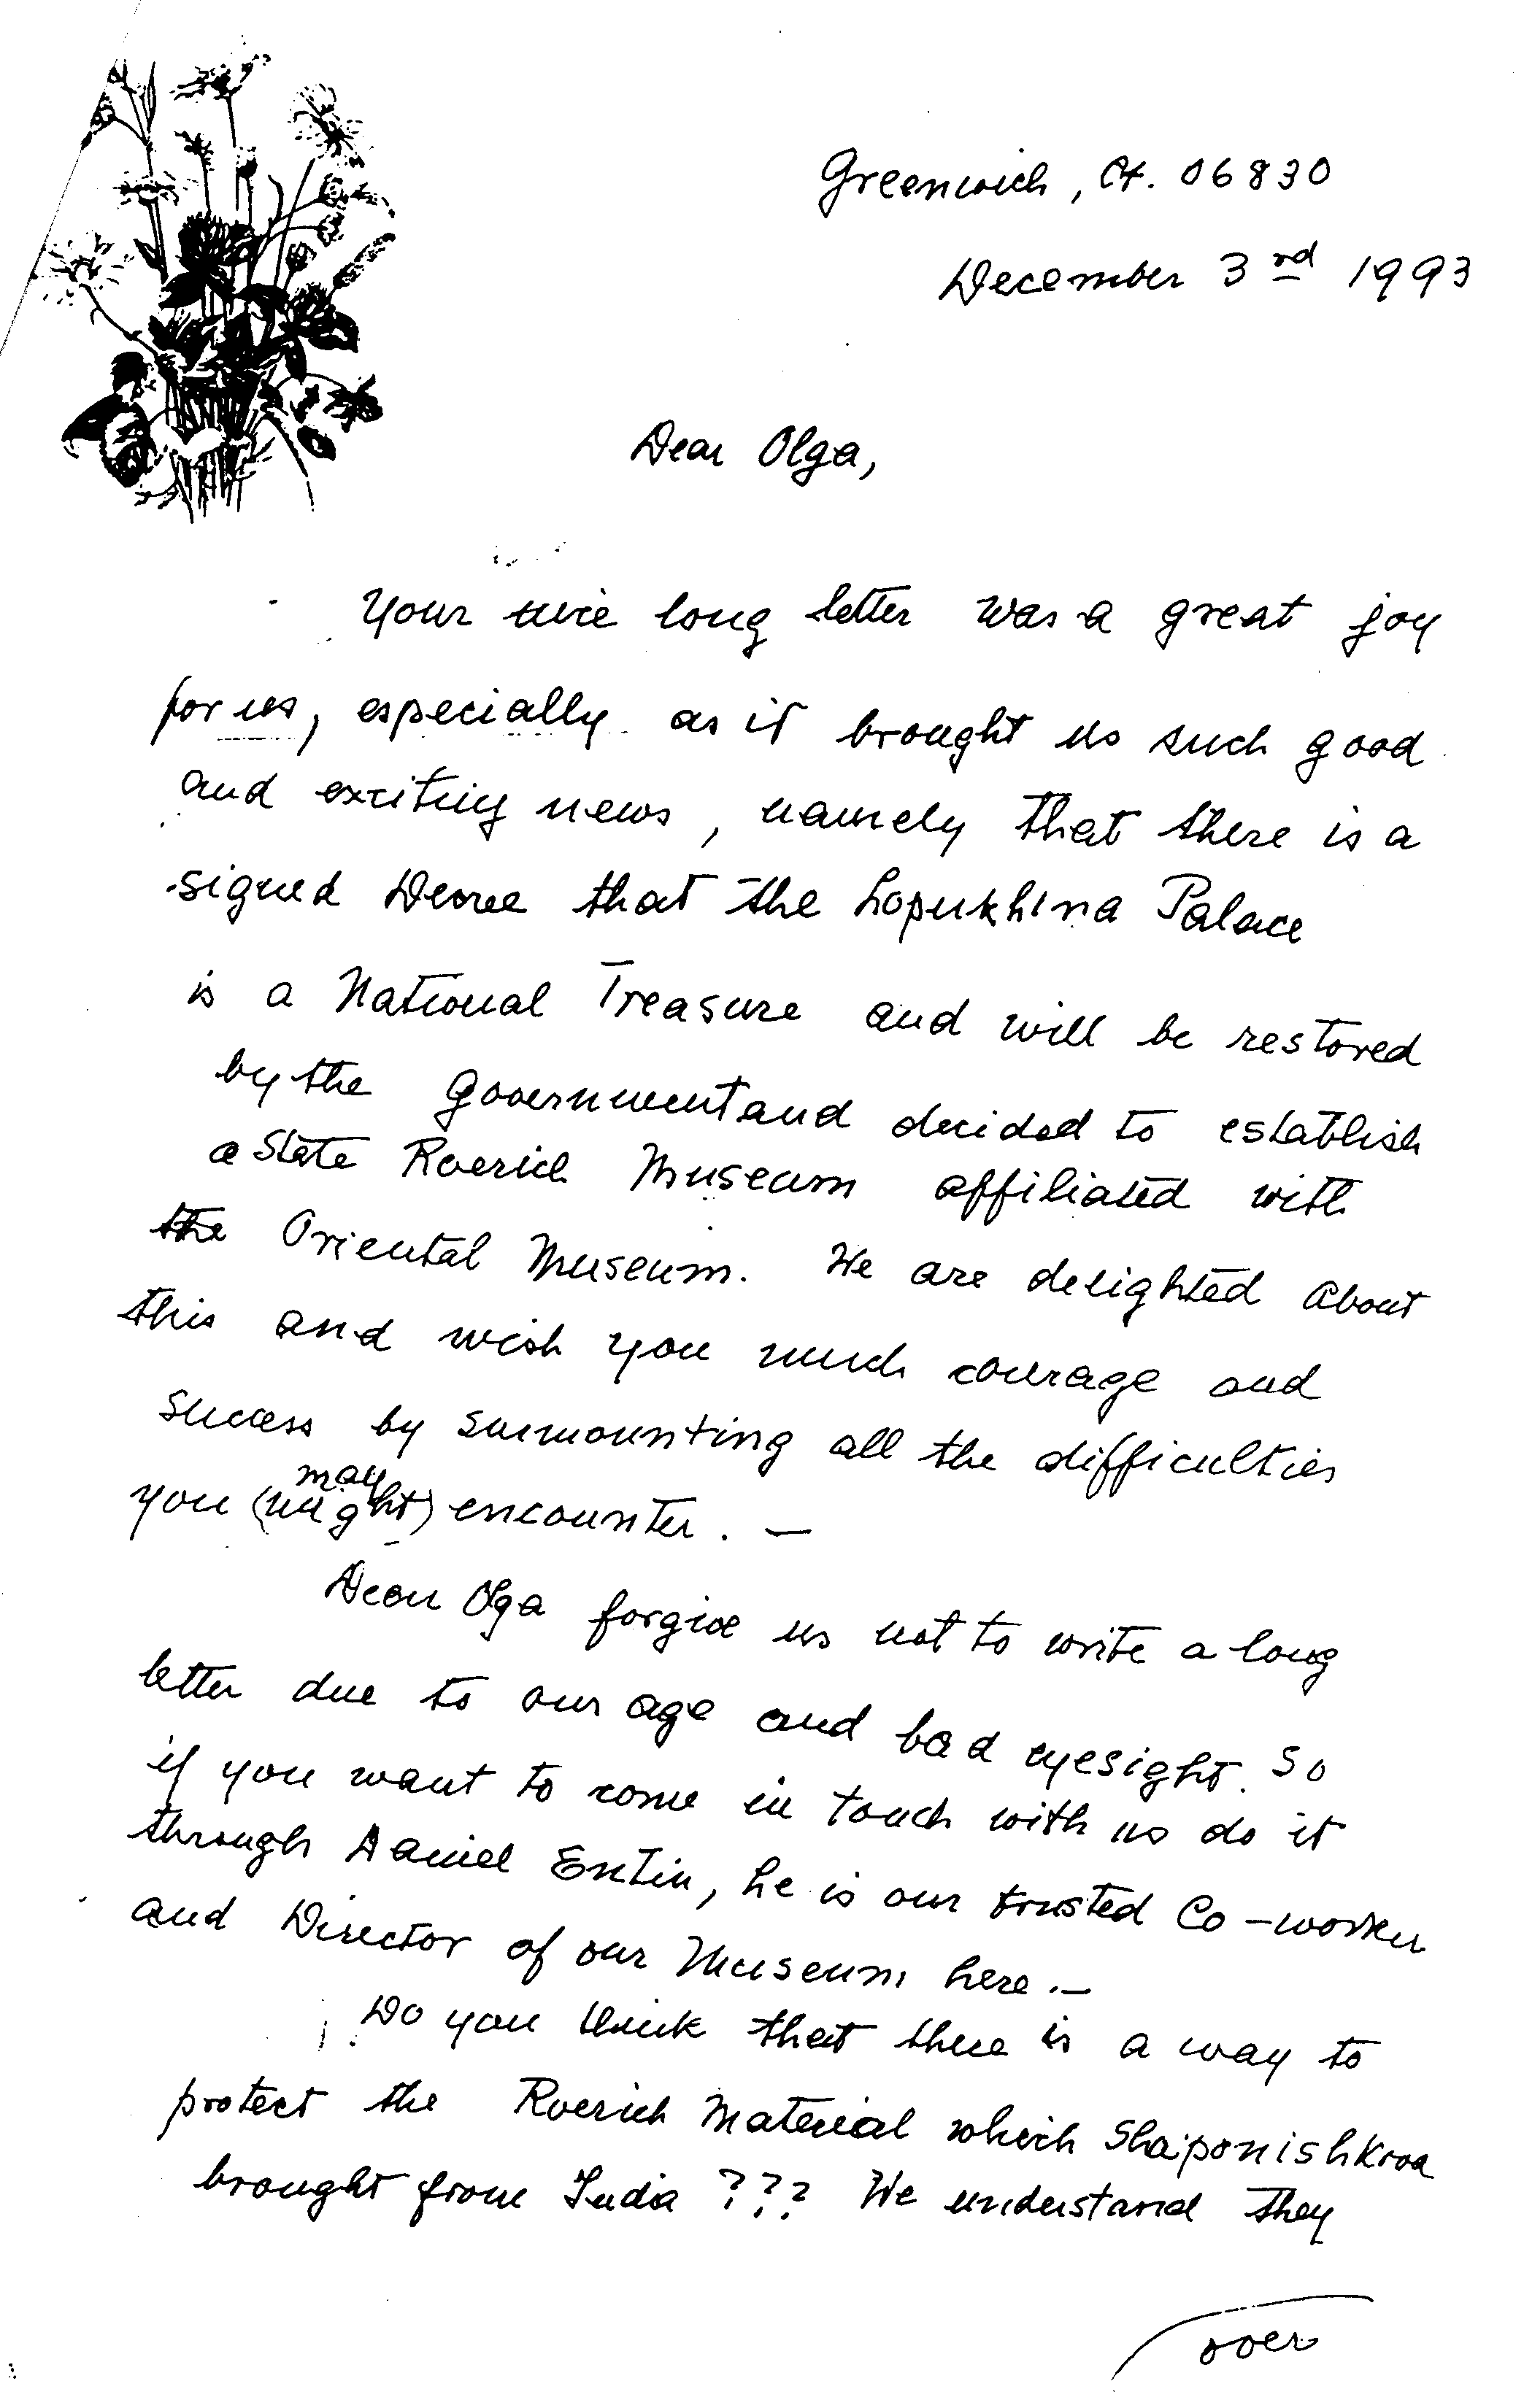 Greenwich, Ct. 06830
December 3rd 1993
Dear Olga,
Your nice long letter was a great joy
for us, especially as it brought us such good
and exciting news, namely that there is a
signed Decree that the Lopukhina Palace
is a National Treasure and will be restored
by the Government and decided to establish
a State Roerich Museum affiliated with
the Oriental Museum. We are delighted about
this and wish you much courage and
success by surmounting all the difficulties
may
you (might) encounter. —
Dear Olga forgive us not to write a long
letter due to our age and bad eyesight. So
if you want to come in touch with us do it
through Daniel Entin, he is our trusted Co-worker
and Director of our Museum here. —
Do you think that there is a way to
protect the Roerich Material which Shaponishkova
brought from India ??? We understand they
over